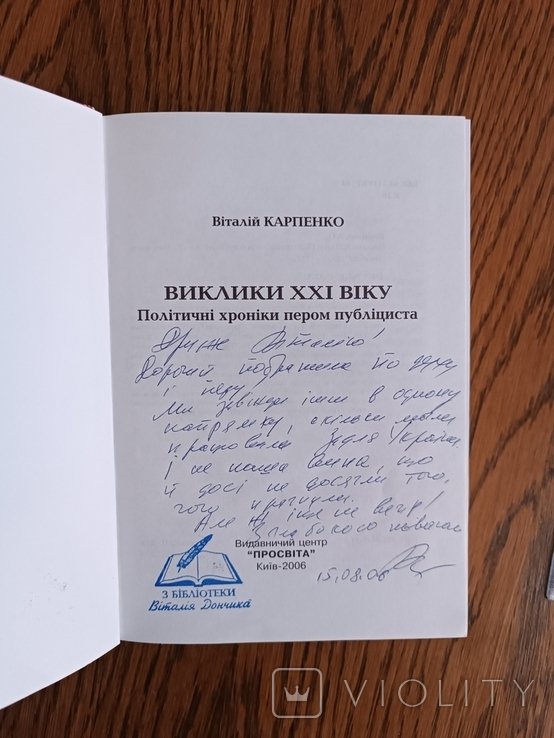 Віталій КАРПЕНКО
ВИКЛИКИ ХХІ ВІКУ
Політичні хроніки пером публіциста
Друже Віталію!
Дорогий побратиме по духу
і перу!
Ми завжди йшли в одному
напрямку, скільки
працювали задля України.
І не наша вина, що
й досі не досягли того,
чого прагнули.
Але ж іще не вечір!
З глибокою повагою
Видавничий центр
"ПРОСВІТА"
Київ-2006
15.08.06
З БІБЛІОТЕКИ
Віталія Дончика
VIOLITY